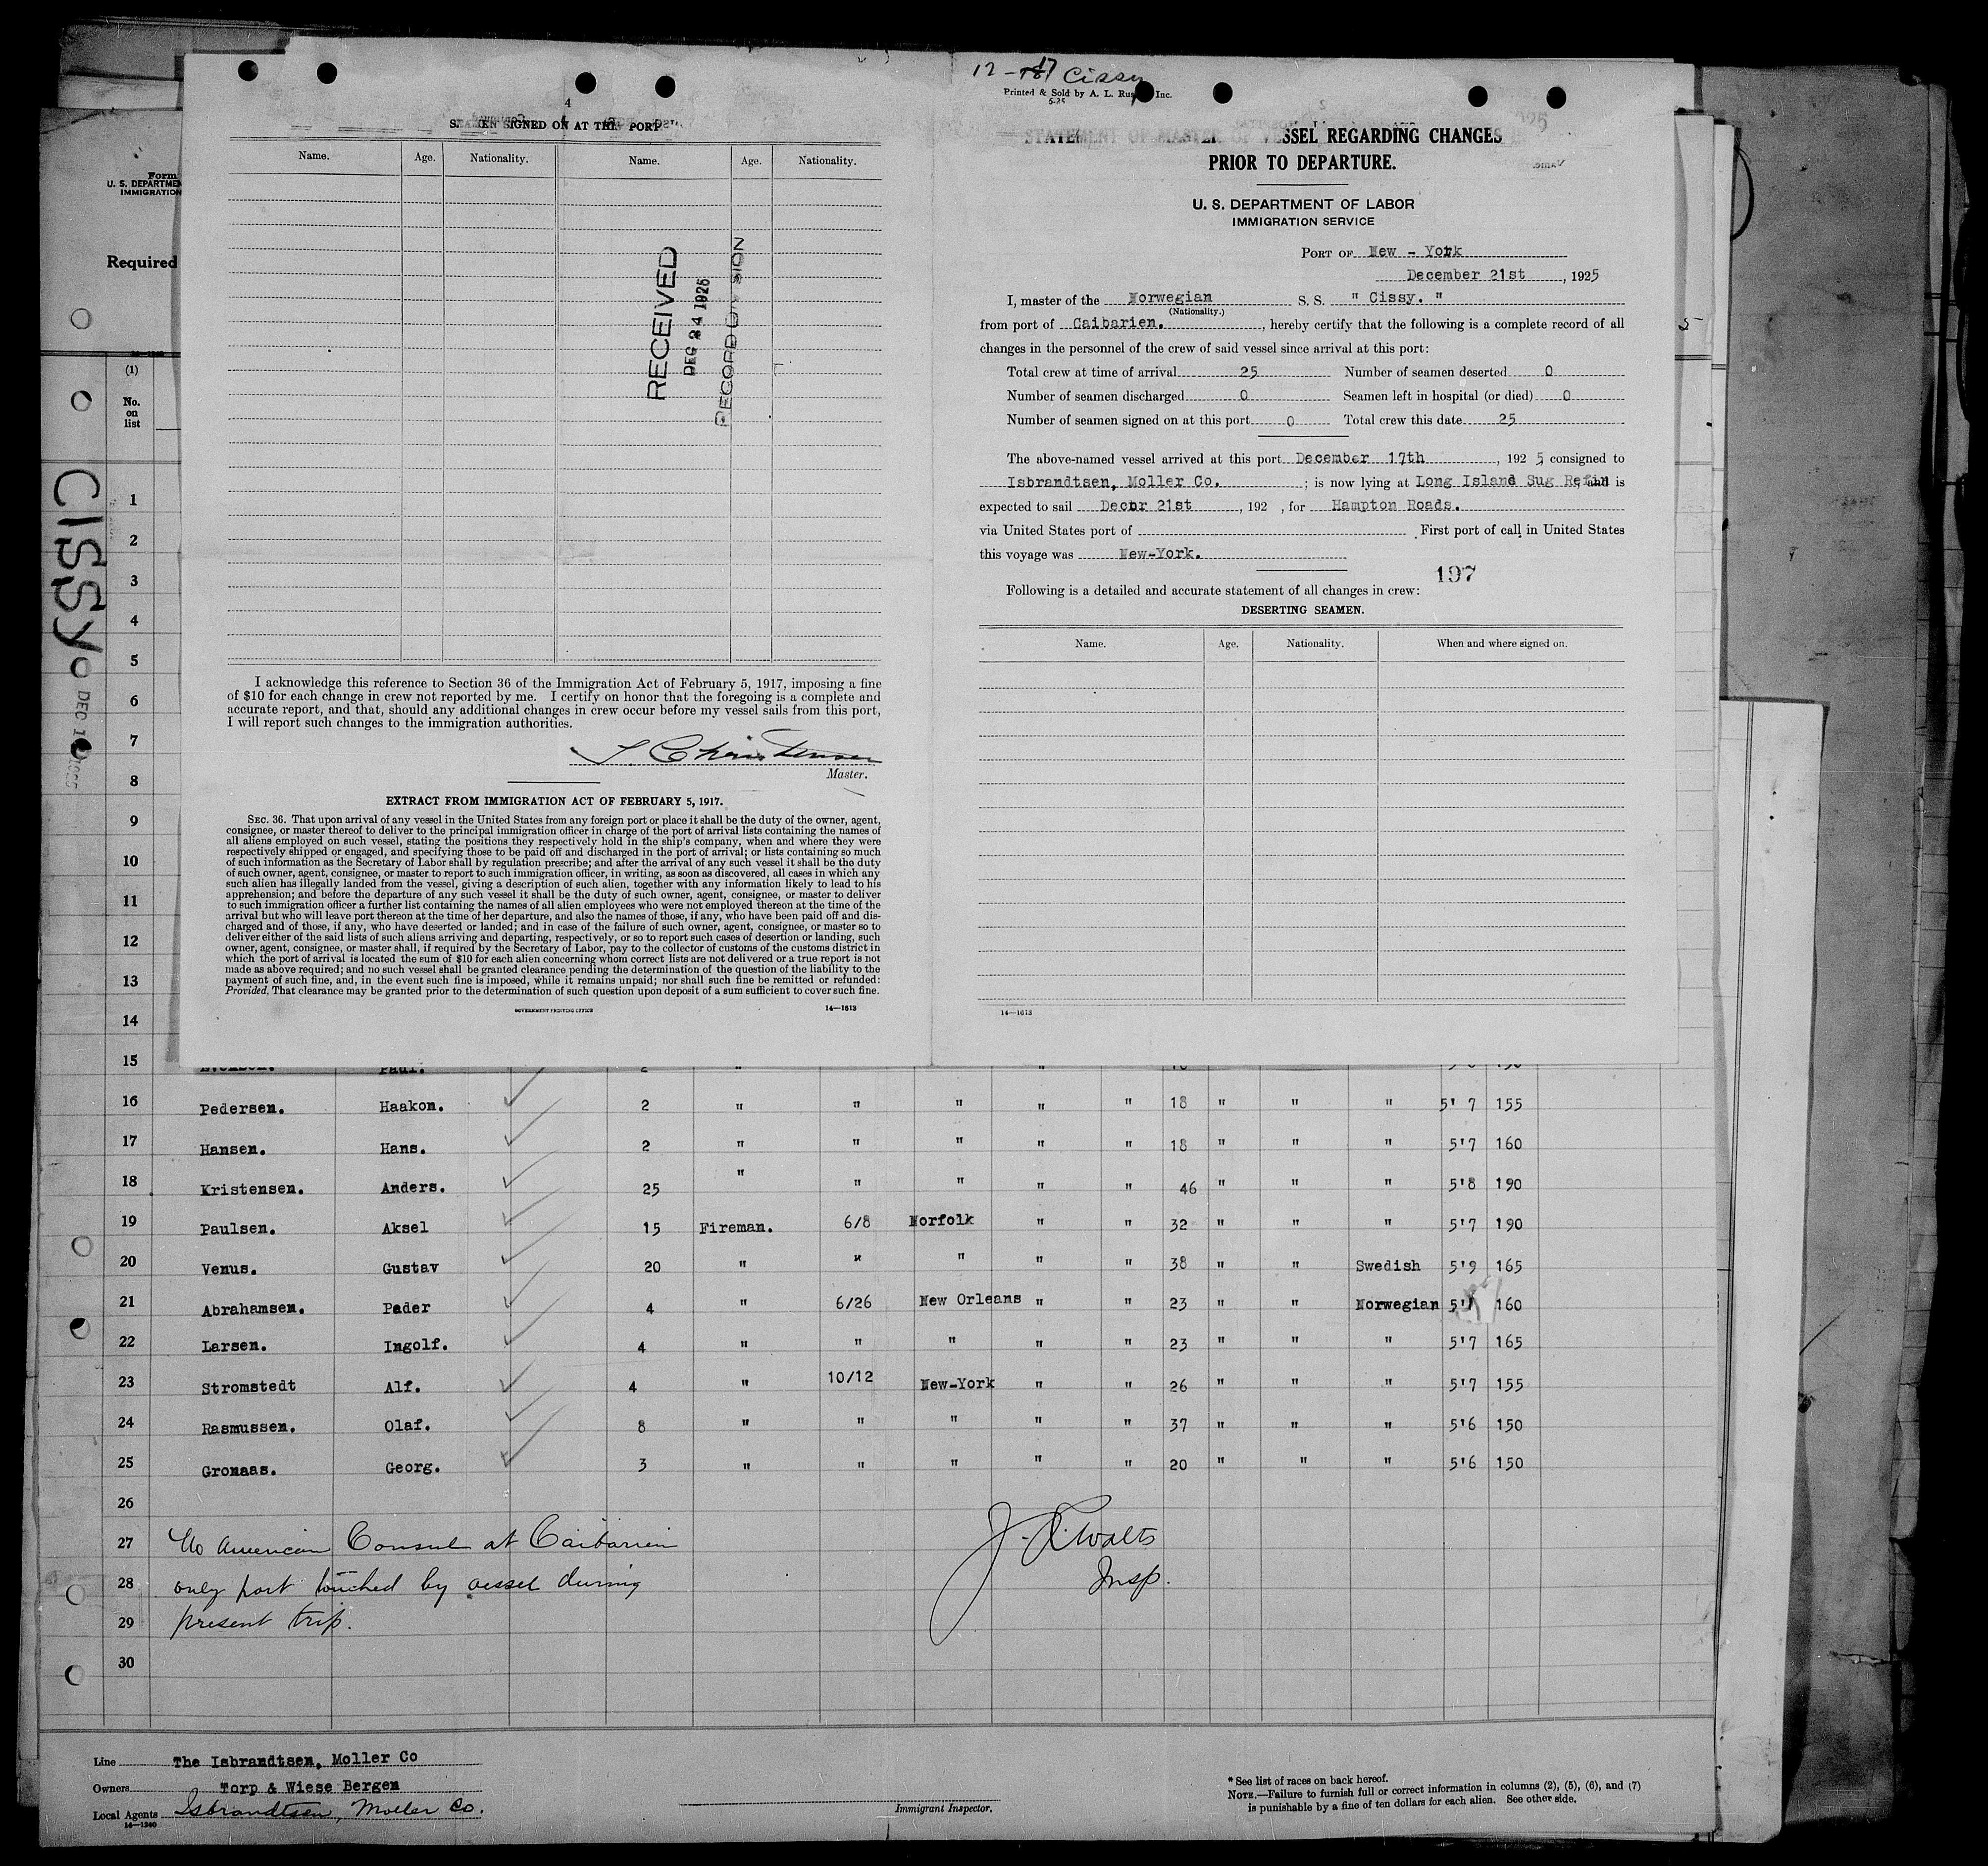 12-17 Cissy
Printed & Sold by A. L. Inc.
6-25
4
SIGNED ON AT PORT
Name. Age. Nationality. Name. Age. Nationality.
RECEIVED
DEC 24 1925
RECORD DIVISION
I acknowledge this reference to Section 36 of the Immigration Act of February 5, 1917, imposing a fine
of $10 for each change in crew not reported by me. I certify on honor that the foregoing is a complete and
accurate report, and that, should any additional changes in crew occur before my vessel sails from this port,
I will report such changes to the immigration authorities.
Christensen
Master.
EXTRACT FROM IMMIGRATION ACT OF FEBRUARY 5, 1917.
SEC. 36. That upon arrival of any vessel in the United States from any foreign port or place it shall be the duty of the owner, agent,
consignee, or master thereof to deliver to the principal immigration officer in charge of the port of arrival lists containing the names of
all aliens employed on such vessel, stating the positions they respectively hold in the ship's company, when and where they were
respectively shipped or engaged, and specifying those to be paid off and discharged in the port of arrival; or lists containing so much
of such information as the Secretary of Labor shall by regulation prescribe; and after the arrival of any such vessel it shall be the duty
of such owner, agent, consignee, or master to report to such immigration officer, in writing, as soon as discovered, all cases in which any
such alien has illegally landed from the vessel, giving a description of such alien, together with any information likely to lead to his
apprehension; and before the departure of any such vessel it shall be the duty of such owner, agent, consignee, or master to deliver
to such immigration officer a further list containing the names of all alien employees who were not employed thereon at the time of the
arrival but who will leave port thereon at the time of her departure, and also the names of those, if any, who have been paid off and dis-
charged and of those, if any, who have deserted or landed; and in case of the failure of such owner, agent, consignee, or master so to
deliver either of the said lists of such aliens arriving and departing, respectively, or so to report such cases of desertion or landing, such
owner, agent, consignee, or master shall, if required by the Secretary of Labor, pay to the collector of customs of the customs district in
which the port of arrival is located the sum of $10 for each alien concerning whom correct lists are not delivered or a true report is not
made as above required; and no such vessel shall be granted clearance pending the determination of the question of the liability to the
payment of such fine, and, in the event such fine is imposed, while it remains unpaid; nor shall such fine be remitted or refunded:
Provided, That clearance may be granted prior to the determination of such question upon deposit of a sum sufficient to cover such fine.
GOVERNMENT PRINTING OFFICE 14—1613
STATEMENT OF MASTER OF VESSEL REGARDING CHANGES
PRIOR TO DEPARTURE.
U. S. DEPARTMENT OF LABOR
IMMIGRATION SERVICE
PORT OF New - York
December 21st, 1925
I, master of the Norwegian S. S. " Cissy. "
(Nationality.)
from port of Caibarien., hereby certify that the following is a complete record of all
changes in the personnel of the crew of said vessel since arrival at this port:
Total crew at time of arrival 25 Number of seamen deserted 0
Number of seamen discharged 0 Seamen left in hospital (or died) 0
Number of seamen signed on at this port 0 Total crew this date 25
The above-named vessel arrived at this port December 17th, 192 5 consigned to
Isbrandtsen, Moller Co. ; is now lying at Long Island Sug Refin and is
expected to sail Decbr 21st, 192 , for Hampton Roads.
via United States port of First port of call in United States
this voyage was New-York.
197
Following is a detailed and accurate statement of all changes in crew:
DESERTING SEAMEN.
Name. Age. Nationality. When and where signed on.
14—1613
Form
U. S. DEPARTMEN
IMMIGRATION
Required
(1)
No.
on
list
Cissy
DEC 1
1
2
3
4
5
6
7
8
9
10
11
12
13
14
15 Paul. 2 "
16 Pedersen. Haakon. 2 " " " " " 18 " " " 5' 7 155
17 Hansen. Hans. 2 " " " " " 18 " " " 5'7 160
18 Kristensen. Anders. 25 " " " " " 46 " " " 5'8 190
19 Paulsen. Aksel 15 Fireman. 6/8 Norfolk " " 32 " " " 5'7 190
20 Venus. Gustav 20 " " " " " 38 " " Swedish 5'9 165
21 Abrahamsen. Peder 4 " 6/26 New Orleans " " 23 " " Norwegian 5'7 160
22 Larsen. Ingolf. 4 " " " " " 23 " " " 5'7 165
23 Stromstedt Alf. 4 " 10/12 New-York " " 26 " " " 5'7 155
24 Rasmussen. Olaf. 8 " " " " " 37 " " " 5'6 150
25 Gronaas. Georg. 3 " " " " " 20 " " " 5'6 150
26
27 No American Consul at Caibarien
28 only port touched by vessel during
29 present trip.
30
Walts
Insp.
Line The Isbrandtsen, Moller Co
Owners Torp & Wiese Bergen
Local Agents Isbrandtsen, Moller Co.
14—1240
Immigrant Inspector.
* See list of races on back hereof.
NOTE.—Failure to furnish full or correct information in columns (2), (5), (6), and (7)
is punishable by a fine of ten dollars for each alien. See other side.